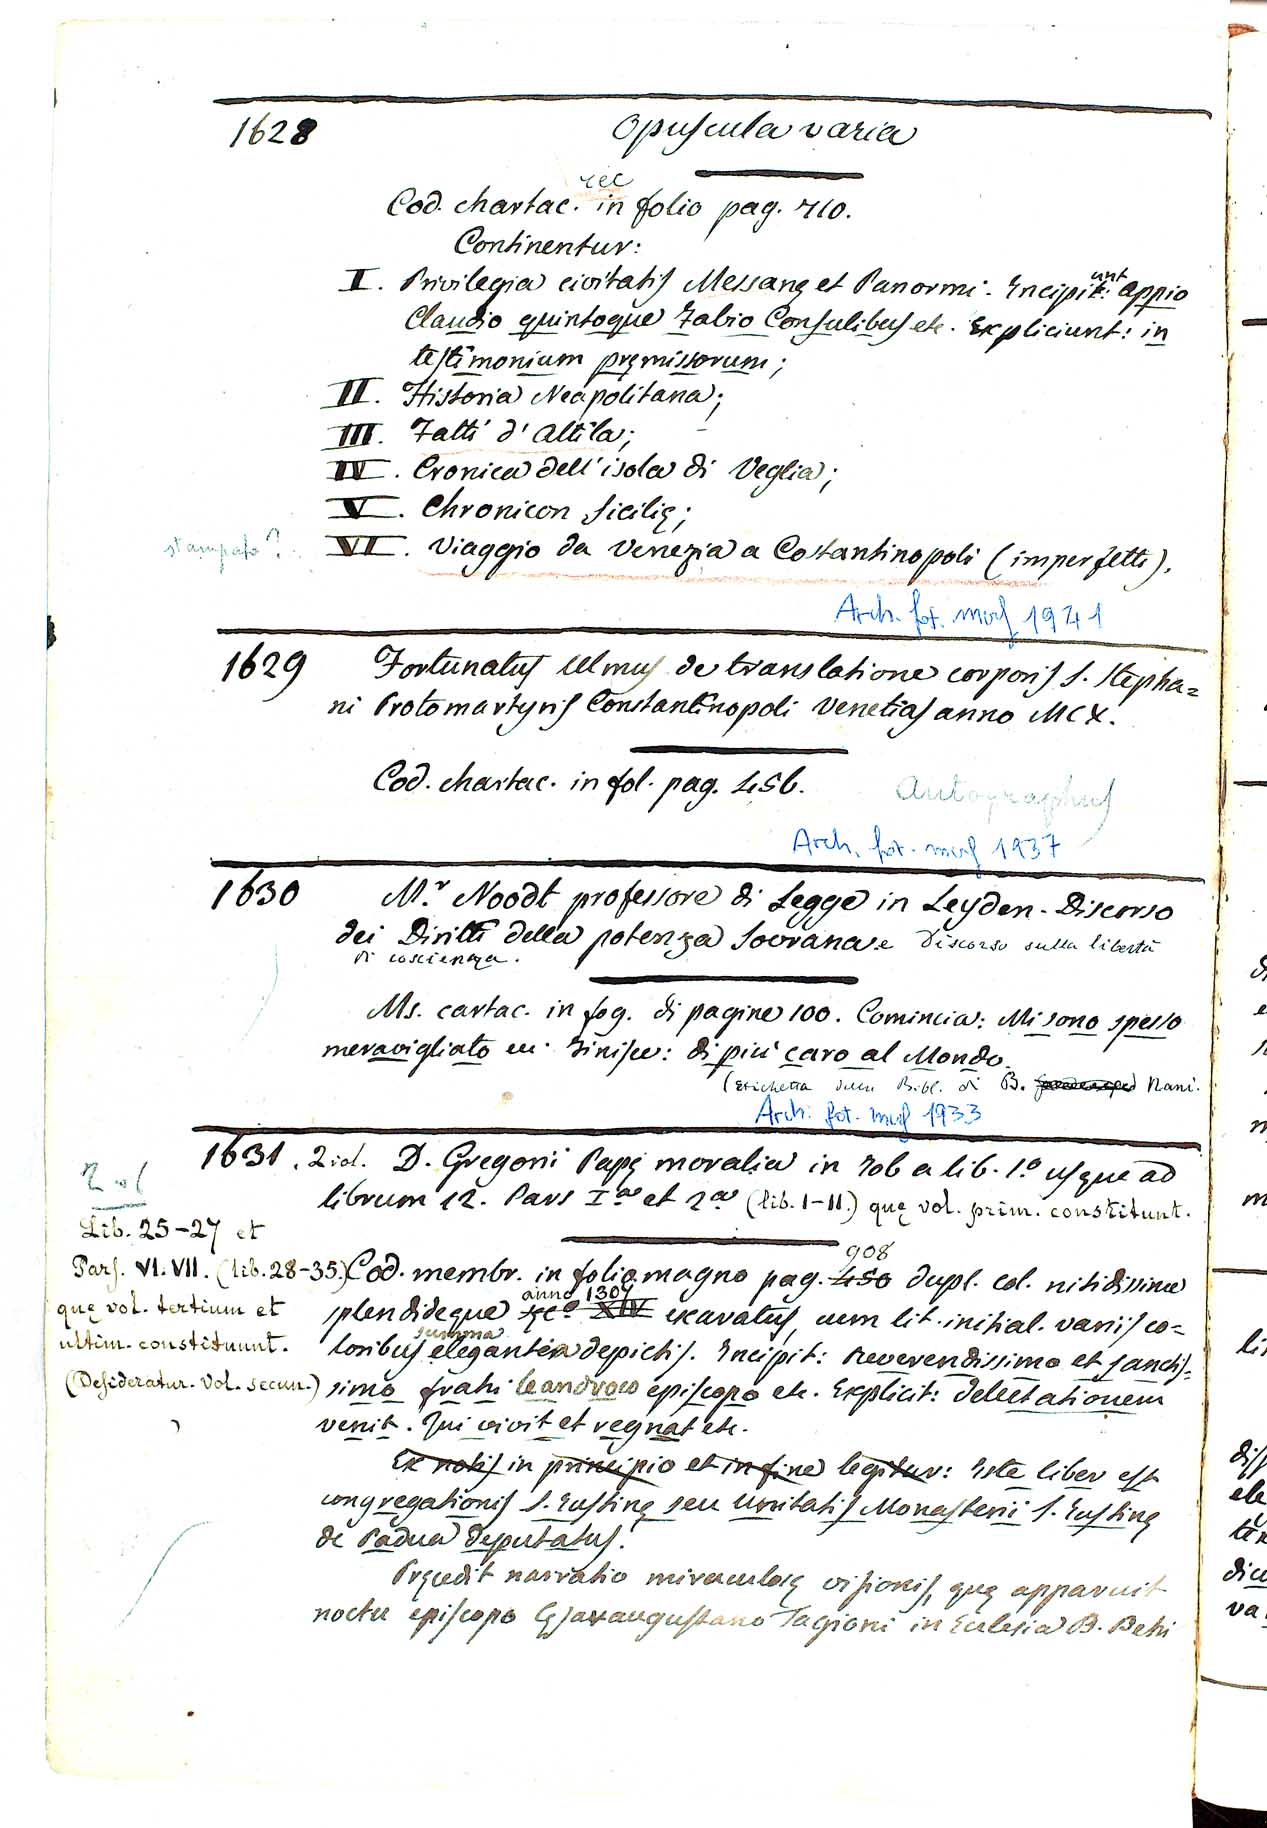 1628 Opuscula varia
rec
Cod. chartac. in folio pag. 710.
Continentur:
I. Privilegia civitatis Messanę et Panormi. Incipiunt: Appio
Claudio quintoque Fabio Consulibus etc. Expliciunt: in
testimonium pręmissorum;
II. Historia Neapolitana;
III. Fatti d'Attila;
IV. Cronica dell'isola di Veglia;
V. Chronicon Sicilię;
stampato? VI. Viaggio da Venezia a Costantinopoli (imperfetto).
Arch. fot. mrf 1941
1629 Fortunatus Ulmus de translatione corporis S. Stepha=
ni Protomartyris Constantinopoli Venetias anno MCX.
Cod. chartac. in fol. pag. 456.
Autographus
Arch. fot. mrf 1937
1630 M.r Noodt professore di Legge in Leyden. Discorso
dei Diritti della potenza Sovrana e Discorso sulla libertà
di coscienza.
Ms. cartac. in fog. di pagine 100. Comincia: Mi sono spesso
meravigliato ec. Finisce: di più caro al Mondo.
(Etichetta della Bibl. di B. Nani.
Arch. fot. mrf 1933
1631. 2 vol. D. Gregorii Papę moralia in Iob a lib. 1.o usque ad
librum 12. Pars I.a et 2.a (lib. 1-11.) quę vol. prim. constituunt.
2 vol
Lib. 25-27 et
Pars. VI. VII. (lib. 28-35.)
quę vol. tertium et
ultim. constituunt.
(Desideratur. vol. secun.)
908
Cod. membr. in folio magno pag. 450 dupl. col. nitidissime
anno 1309
splendideque sęc.o XIV exaratus, cum lit. initial. variis co=
summa
loribus elegantia depictis. Incipit: Reverendissimo et sanctis=
simo fratri leandro coepiscopo etc. Explicit: delectationem
venit. Qui vivit et regnat etc.
Ex notis in principio et in fine legitur: Iste liber est
congregationis S. Iustinę seu Unitatis Monasterii S. Iustinę
de Padua deputatus.
Pręcedit narratio miraculosę visionis, quę apparuit
noctu episcopo Cęsaraugustano Tagioni in Ecclesia B. Petri